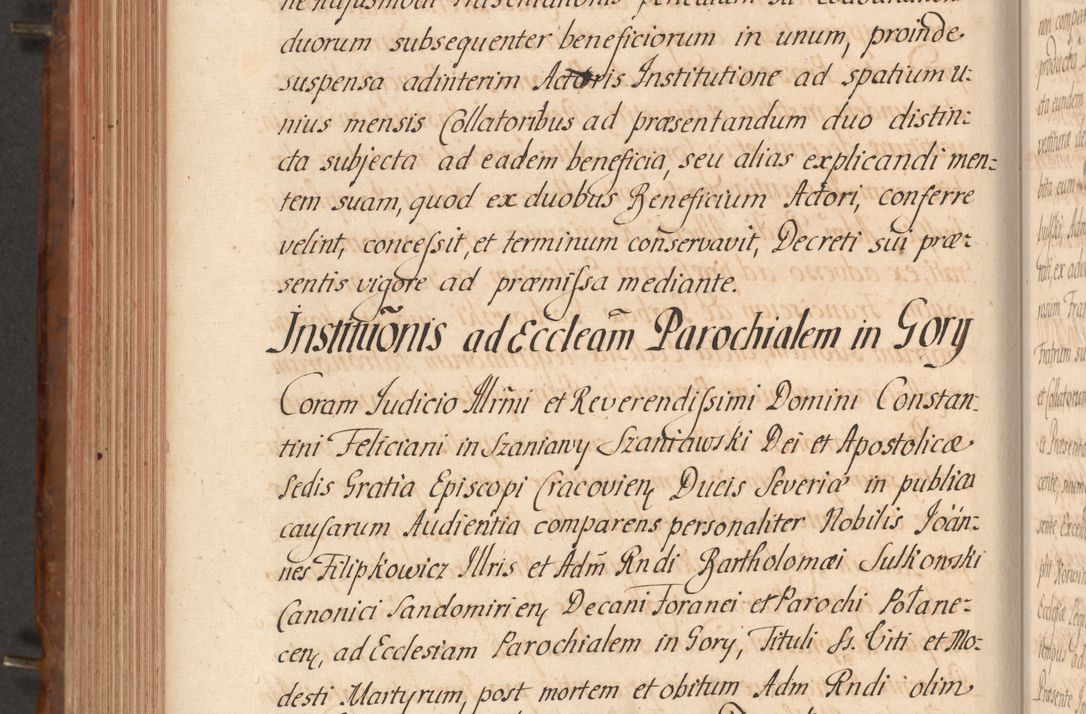 duorum subsequenter beneficiorum in unum, proinde
suspensa adinterim Actoris Institutione ad spatium u:
nius mensis Collatoribus ad præsentandum duo distin:
cta subjecta ad eadem beneficia, seu alias explicandi men:
tem suam, quod ex duobus Beneficium Actori, conferre
velint, concessit, et terminum conservavit, Decreti sui præ:
sentis vigore ad præmissa mediante.
Instituõnis ad Eccleam̃ Parochialem in Gory
Coram Judicio Illrm̃i et Reverendissimi Domini Constan:
tini Feliciani in Szaniawy Szaniawski Dei et Apostolicæ
Sedis Gratia Episcopi Cracovien, Ducis Severiæ in publica
causarum Audientia comparens personaliter Nobilis Joãn:
nes Filipkowicz Illris et Adm̃ Rndi Bartholomæi Sulkowski
Canonici Sandomirien, Decani Foranei et Parochi Połane:
cen, ad Ecclesiam Parochialem in Gory, Tituli SS. Viti et Mo:
desti Martyrum, post mortem et obitum Adm Rndi olim